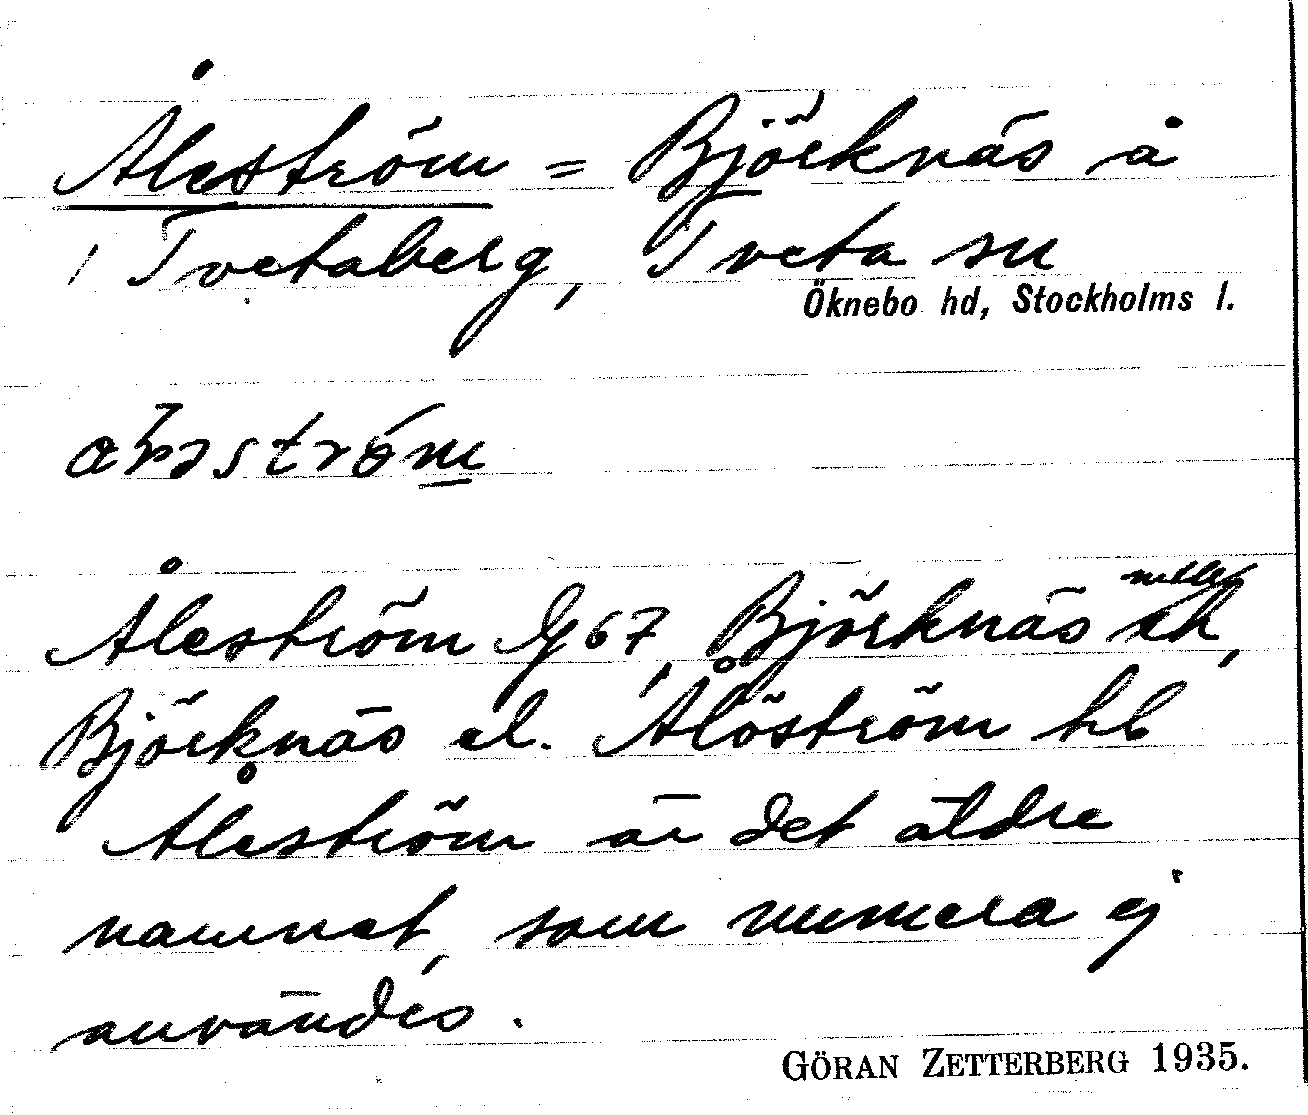 Åleström = Björknäs å
i Tvetaberg, Tveta sn
Öknebo hd, Stockholms l.
Åleström G 67, Björknäs ek,
Björknäs el. Ålöström hb
Åleström är det äldre
namnet, som numera ej
användes.
GÖRAN ZETTERBERG 1935.